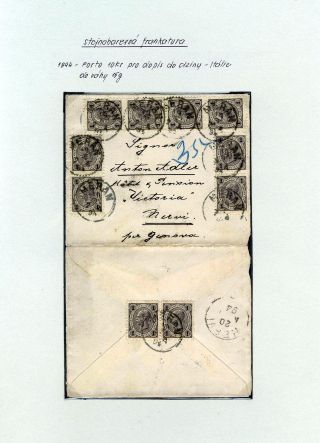 stejnobarevná frankatura
1944 - Porto 10Kr pro dopis do ciziny - Itálie
do váhy 15g
MERAN
Signor
Anton Adler
Hôtel & Pension
"Victoria"
Nervi
per Genova
MERAN
NERVI
20
4
94